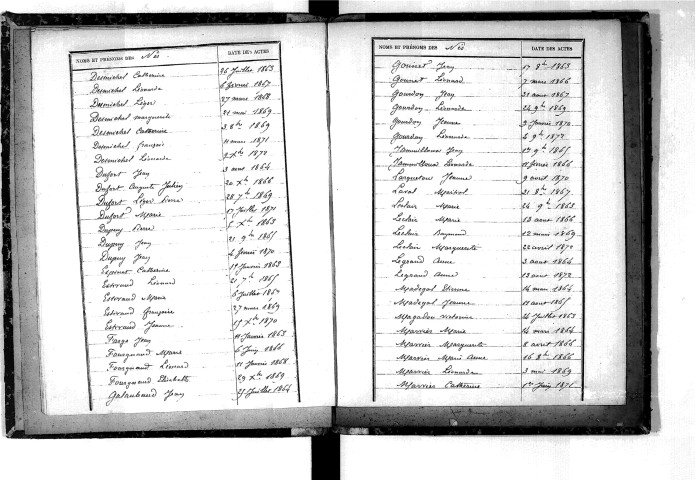 NOMS ET PRÉNOMS DES Nés DATE DES ACTES
Desmichel Catherine 26 Juillet 1863
Desmichel Léonarde 6 février 1867
Desmichel Léger 27 mars 1868
Desmichel marguerite 21 mai 1869
Desmichel Catherine 3 8bre 1869
Desmichel françois 11 mars 1871
Desmichel Léonarde 2 Xbre 1872
Dufort Jean 3 août 1864
Dufort Auguste Julien 20 Xbre 1866
Dufort Léger Pierre 28 7bre 1869
Dufort Marie 17 Juillet 1871
Dupuy Pierre Xbre 1863
Dupuy Jean 21 9bre 1865
Dupuy Jean 4 février 1870
Espinet Catherine Janvier 1863
Estivaud Léonard 21 7bre 1865
Estivaud Marie 6 Juillet 1867
Estivaud Françoise 27 mars 1869
Estivaud Jeanne 15 Xbre 1870
Farge Jean 11 Janvier 1863
Fougnaud Marie 6 Juin 1866
Fougnaud Léonard 11 Janvier 1868
Fougnaud Elisabeth 29 Xbre 1869
Galaubaud Jean 25 Juillet 1864
NOMS ET PRÉNOMS DES Nés DATE DES ACTES
Gounet Jean 17 8bre 1863
Gounet Léonard 7 mars 1866
Gourdon Jean 31 août 1867
Gourdon Léonarde 24 9bre 1869
Gourdon Jeanne 2 février 1870
Gourdon Léonarde 2 9bre 1872
Jean 1er 9bre 1865
Léonarde 11 février 1866
Larqueton Jeanne 9 avril 1870
Laval Martial 31 8bre 1867
Leclair Marie 24 9bre 1863
Leclair Marie 13 août 1866
Leclair Raymond 12 mai 1869
Leclair Marguerite 22 avril 1872
Legrand Anne 3 août 1864
Legrand Anne 13 août 1872
Madegal Etienne 14 mai 1864
Madegal Jeanne 11 août 1865
Magadou Victorine 24 Juillet 1863
Marrier Marie 14 mars 1864
Marrier Marguerite 8 avril 1866
Marrier Marie Anne 16 8bre 1866
Marrier Léonardou 3 mai 1869
Marrier Catherine 1er Juin 1871